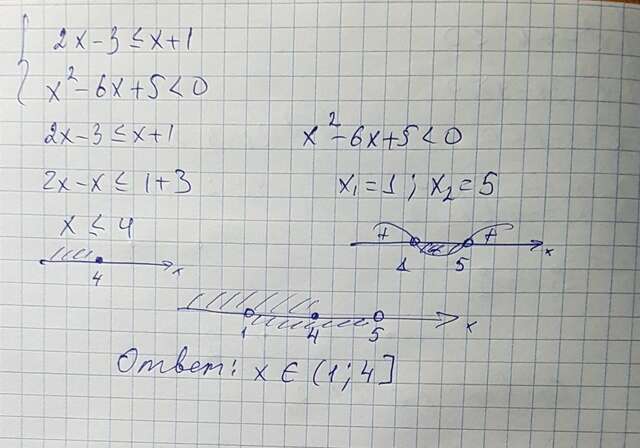 2x-3≤x+1
x²-6x+5<0
2x-3≤x+1
2x-x≤1+3
x≤4
4 x
x²-6x+5<0
x₁=1; x₂=5
+ +
1 5 x
1 4 5 x
Ответ: x∈(1;4]